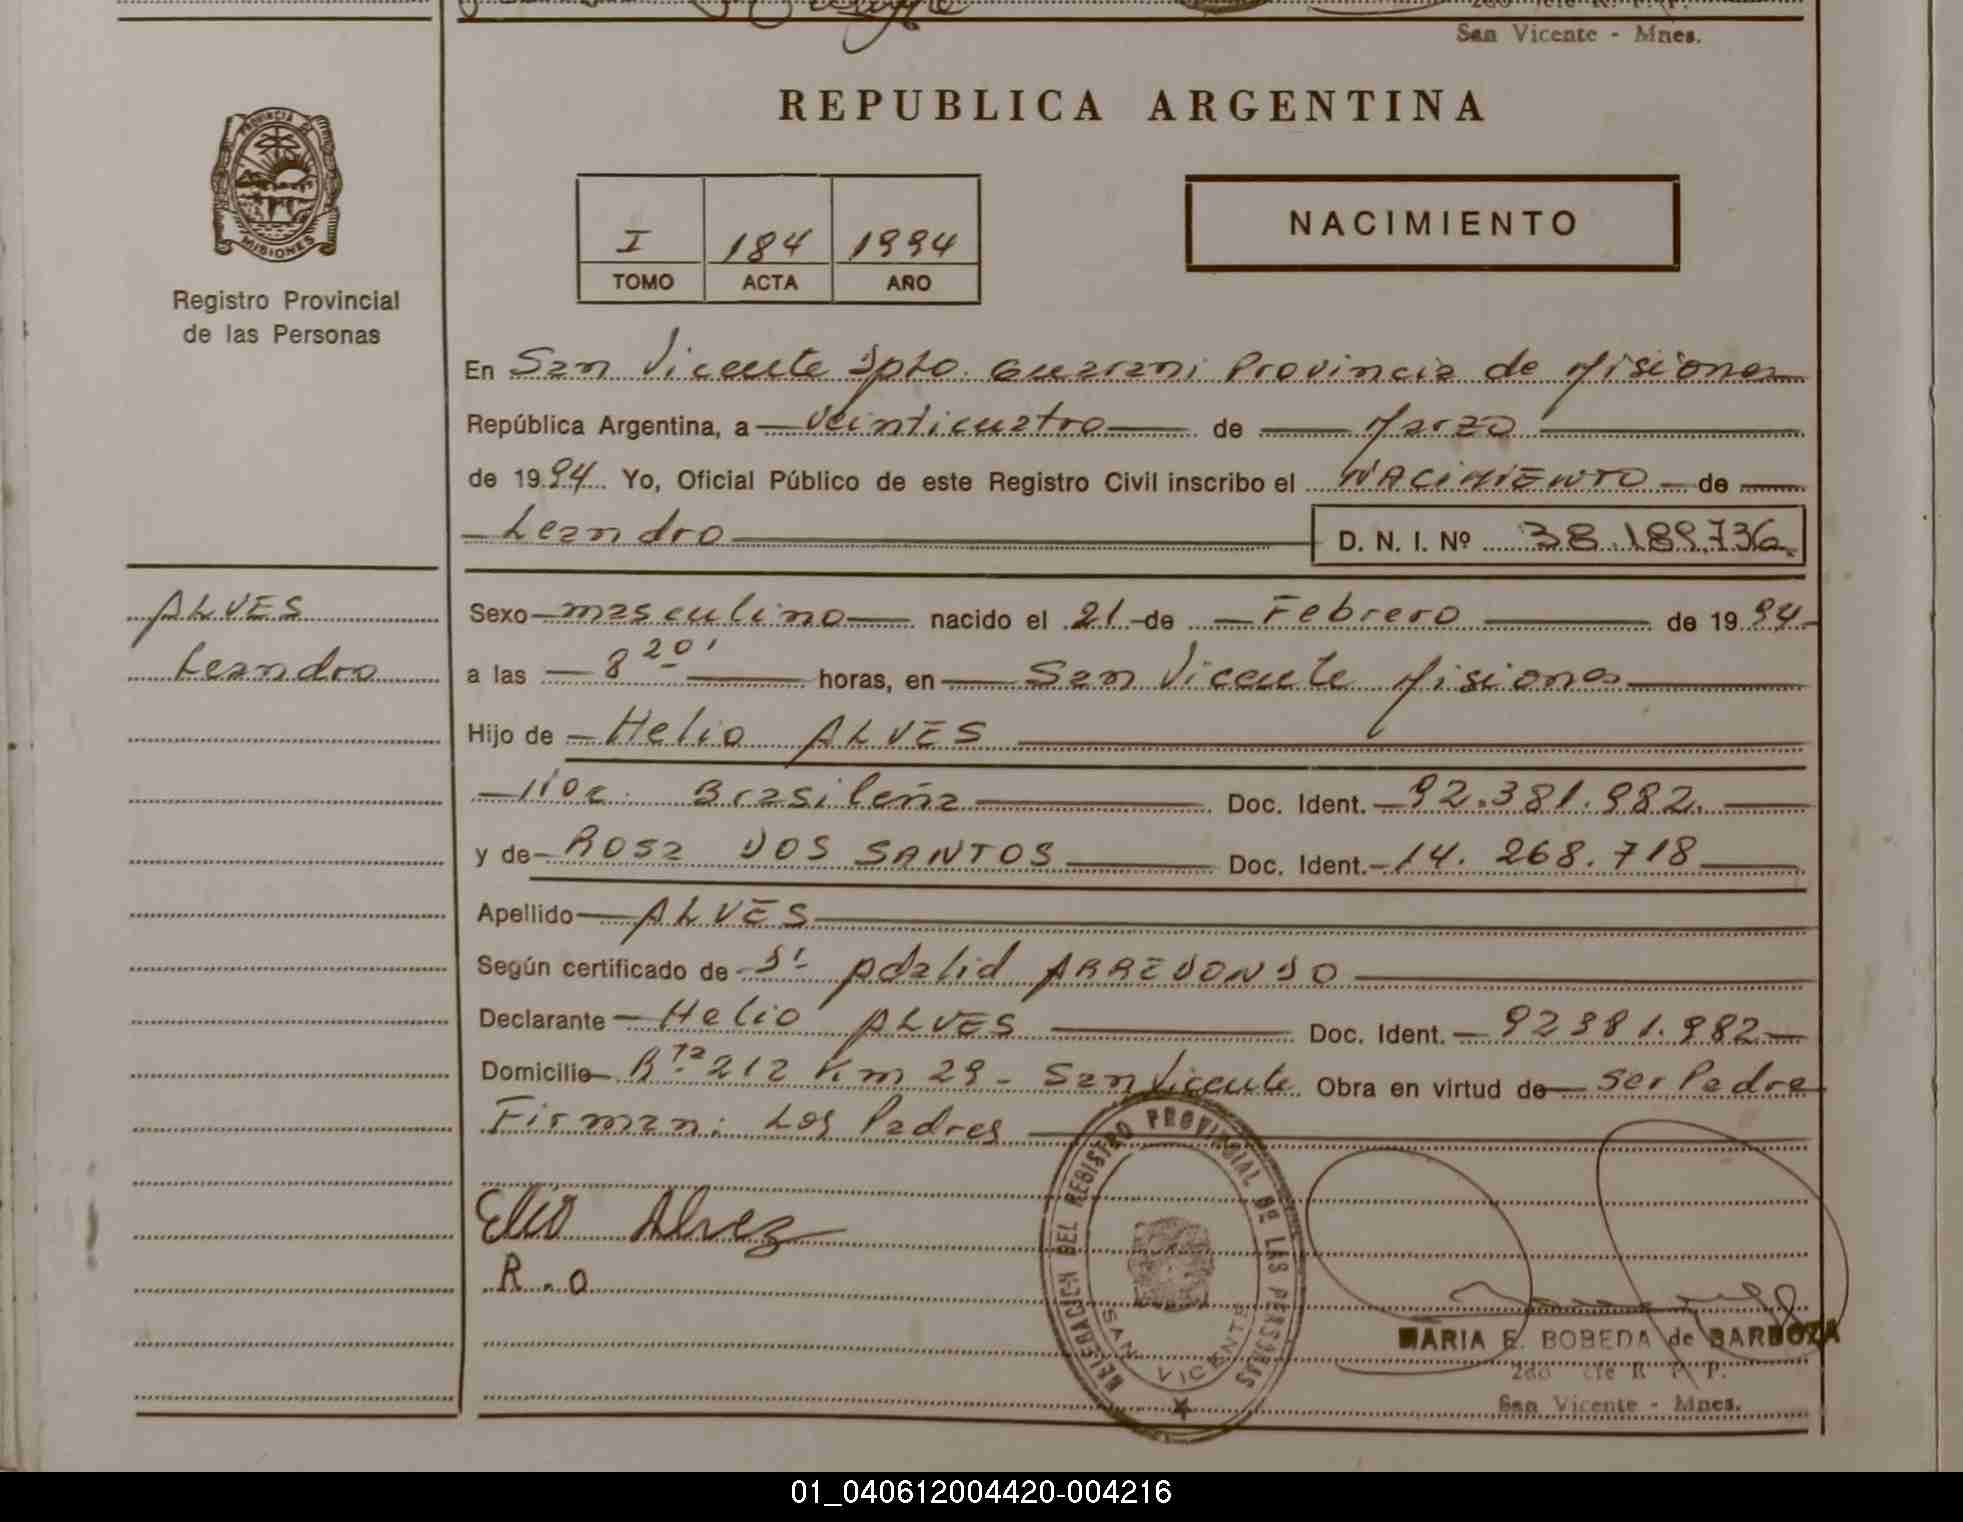 San Vicente - Mnes.
REPUBLICA ARGENTINA
PROVINCIA DE
MISIONES
Registro Provincial
de las Personas
I 184 1994
TOMO ACTA AÑO
NACIMIENTO
En San Vicente Dpto. Guarani Provincia de Misiones
República Argentina, a veinticuatro de Marzo
de 1994 Yo, Oficial Público de este Registro Civil inscribo el NACIMIENTO de
Leandro D. N. I. Nº 38.189.736
ALVES
Leandro
Sexo masculino nacido el 21 de Febrero de 1994
a las 8 20' horas, en San Vicente Misiones
Hijo de Helio ALVES
Brasileña Doc. Ident. 92.381.982.
y de Rosa DOS SANTOS Doc. Ident. 14.268.718
Apellido ALVES
Según certificado de Adalid ARREDONDO
Declarante Helio ALVES Doc. Ident. 92381.982
Domicilio Rta 212 Km 29 - San Vicente Obra en virtud de ser Padre
Firman: Los Padres
Elio Alvez
R . O
DELEGACION DEL REGISTRO PROVINCIAL DE LAS PERSONAS
SAN VICENTE
MARIA E. BOBEDA de BARBOZA
San Vicente - Mnes.
01_040612004420-004216